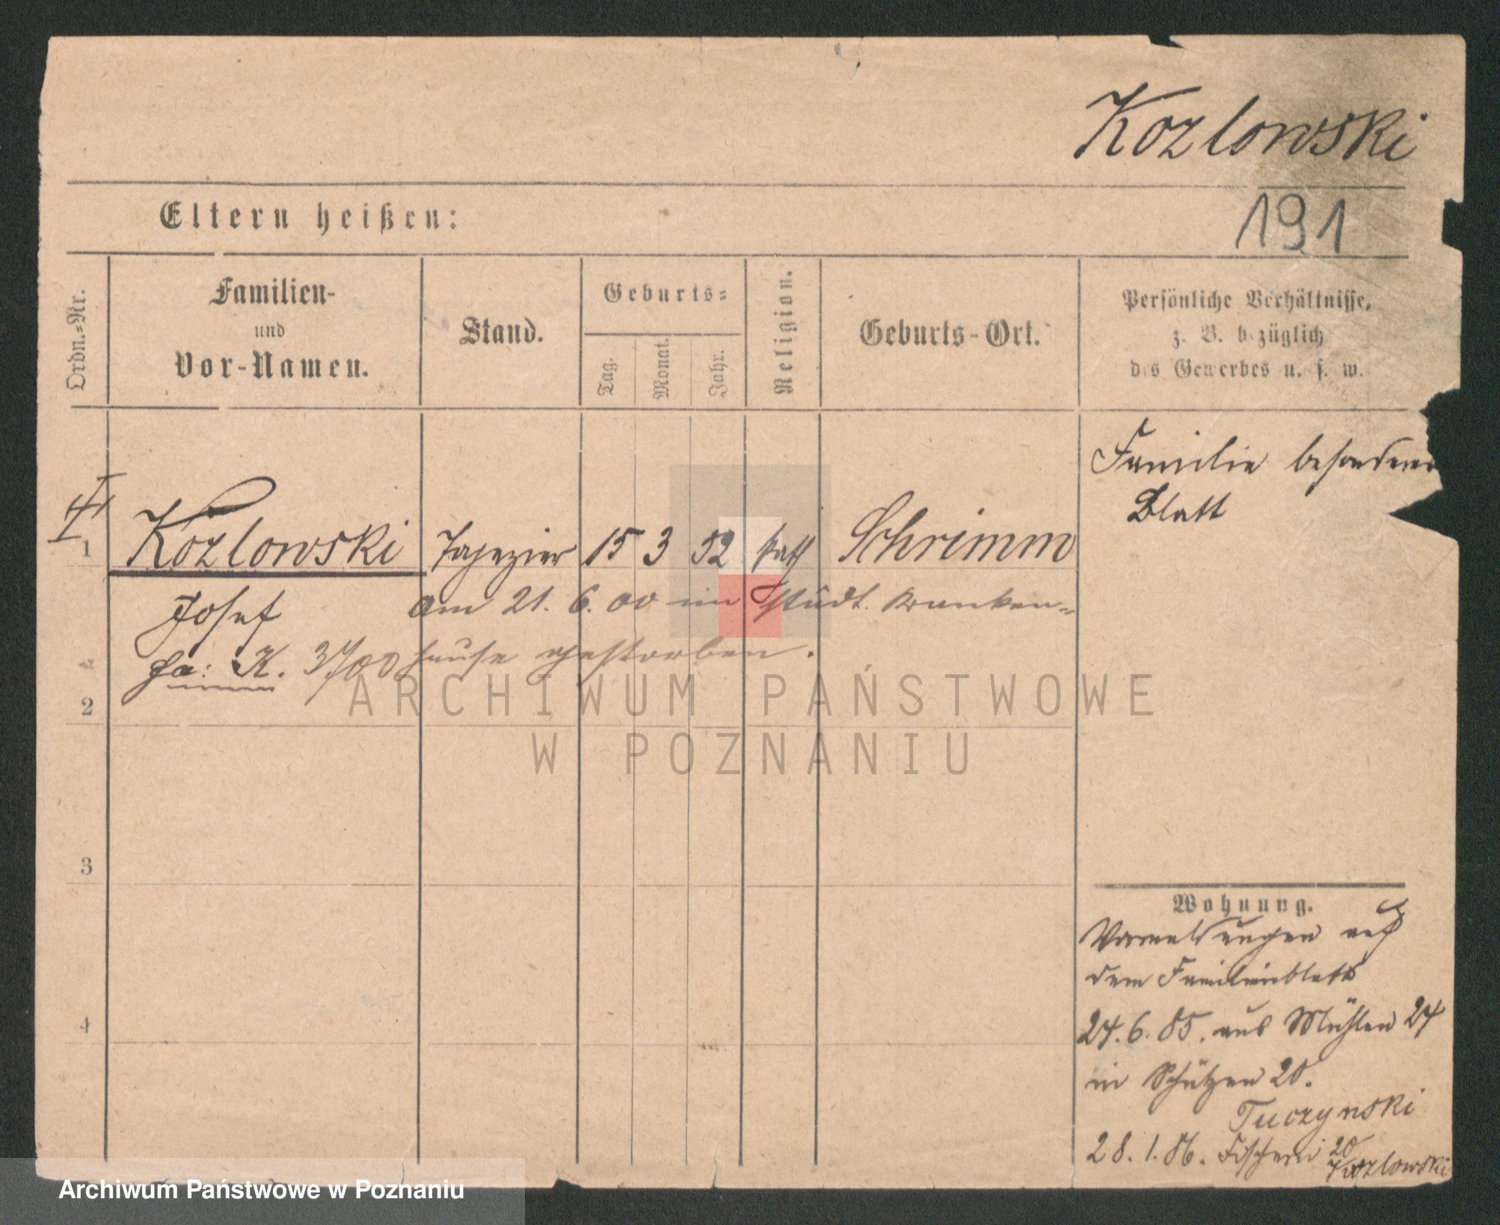 Kozlowski
191
Eltern heißen:
Ordn.-Nr.
Familien-
und
Vor-Namen.
Stand.
Geburts-
Tag.
Monat.
Jahr.
Religion.
Geburts-Ort.
Persönliche Verhältnisse,
z. B. bezüglich
des Gewerbes u. s. w.
Familie besonderes
Blatt
1 Kozlowski Tapezier 15 3 52 kath Schrimm
Josef am 21. 6. 00 im städt. Kranken-
K. 3/00 hause gestorben.
2
3
4
Wohnung.
Vormeldungen auf
dem Familienblatt
24. 6. 85. aus Mühlen 24
in Schützen 20.
Tuczynski
28. 1. 86. Fischerei 20
Kozlowski
ARCHIWUM PAŃSTWOWE
W POZNANIU
Archiwum Państwowe w Poznaniu